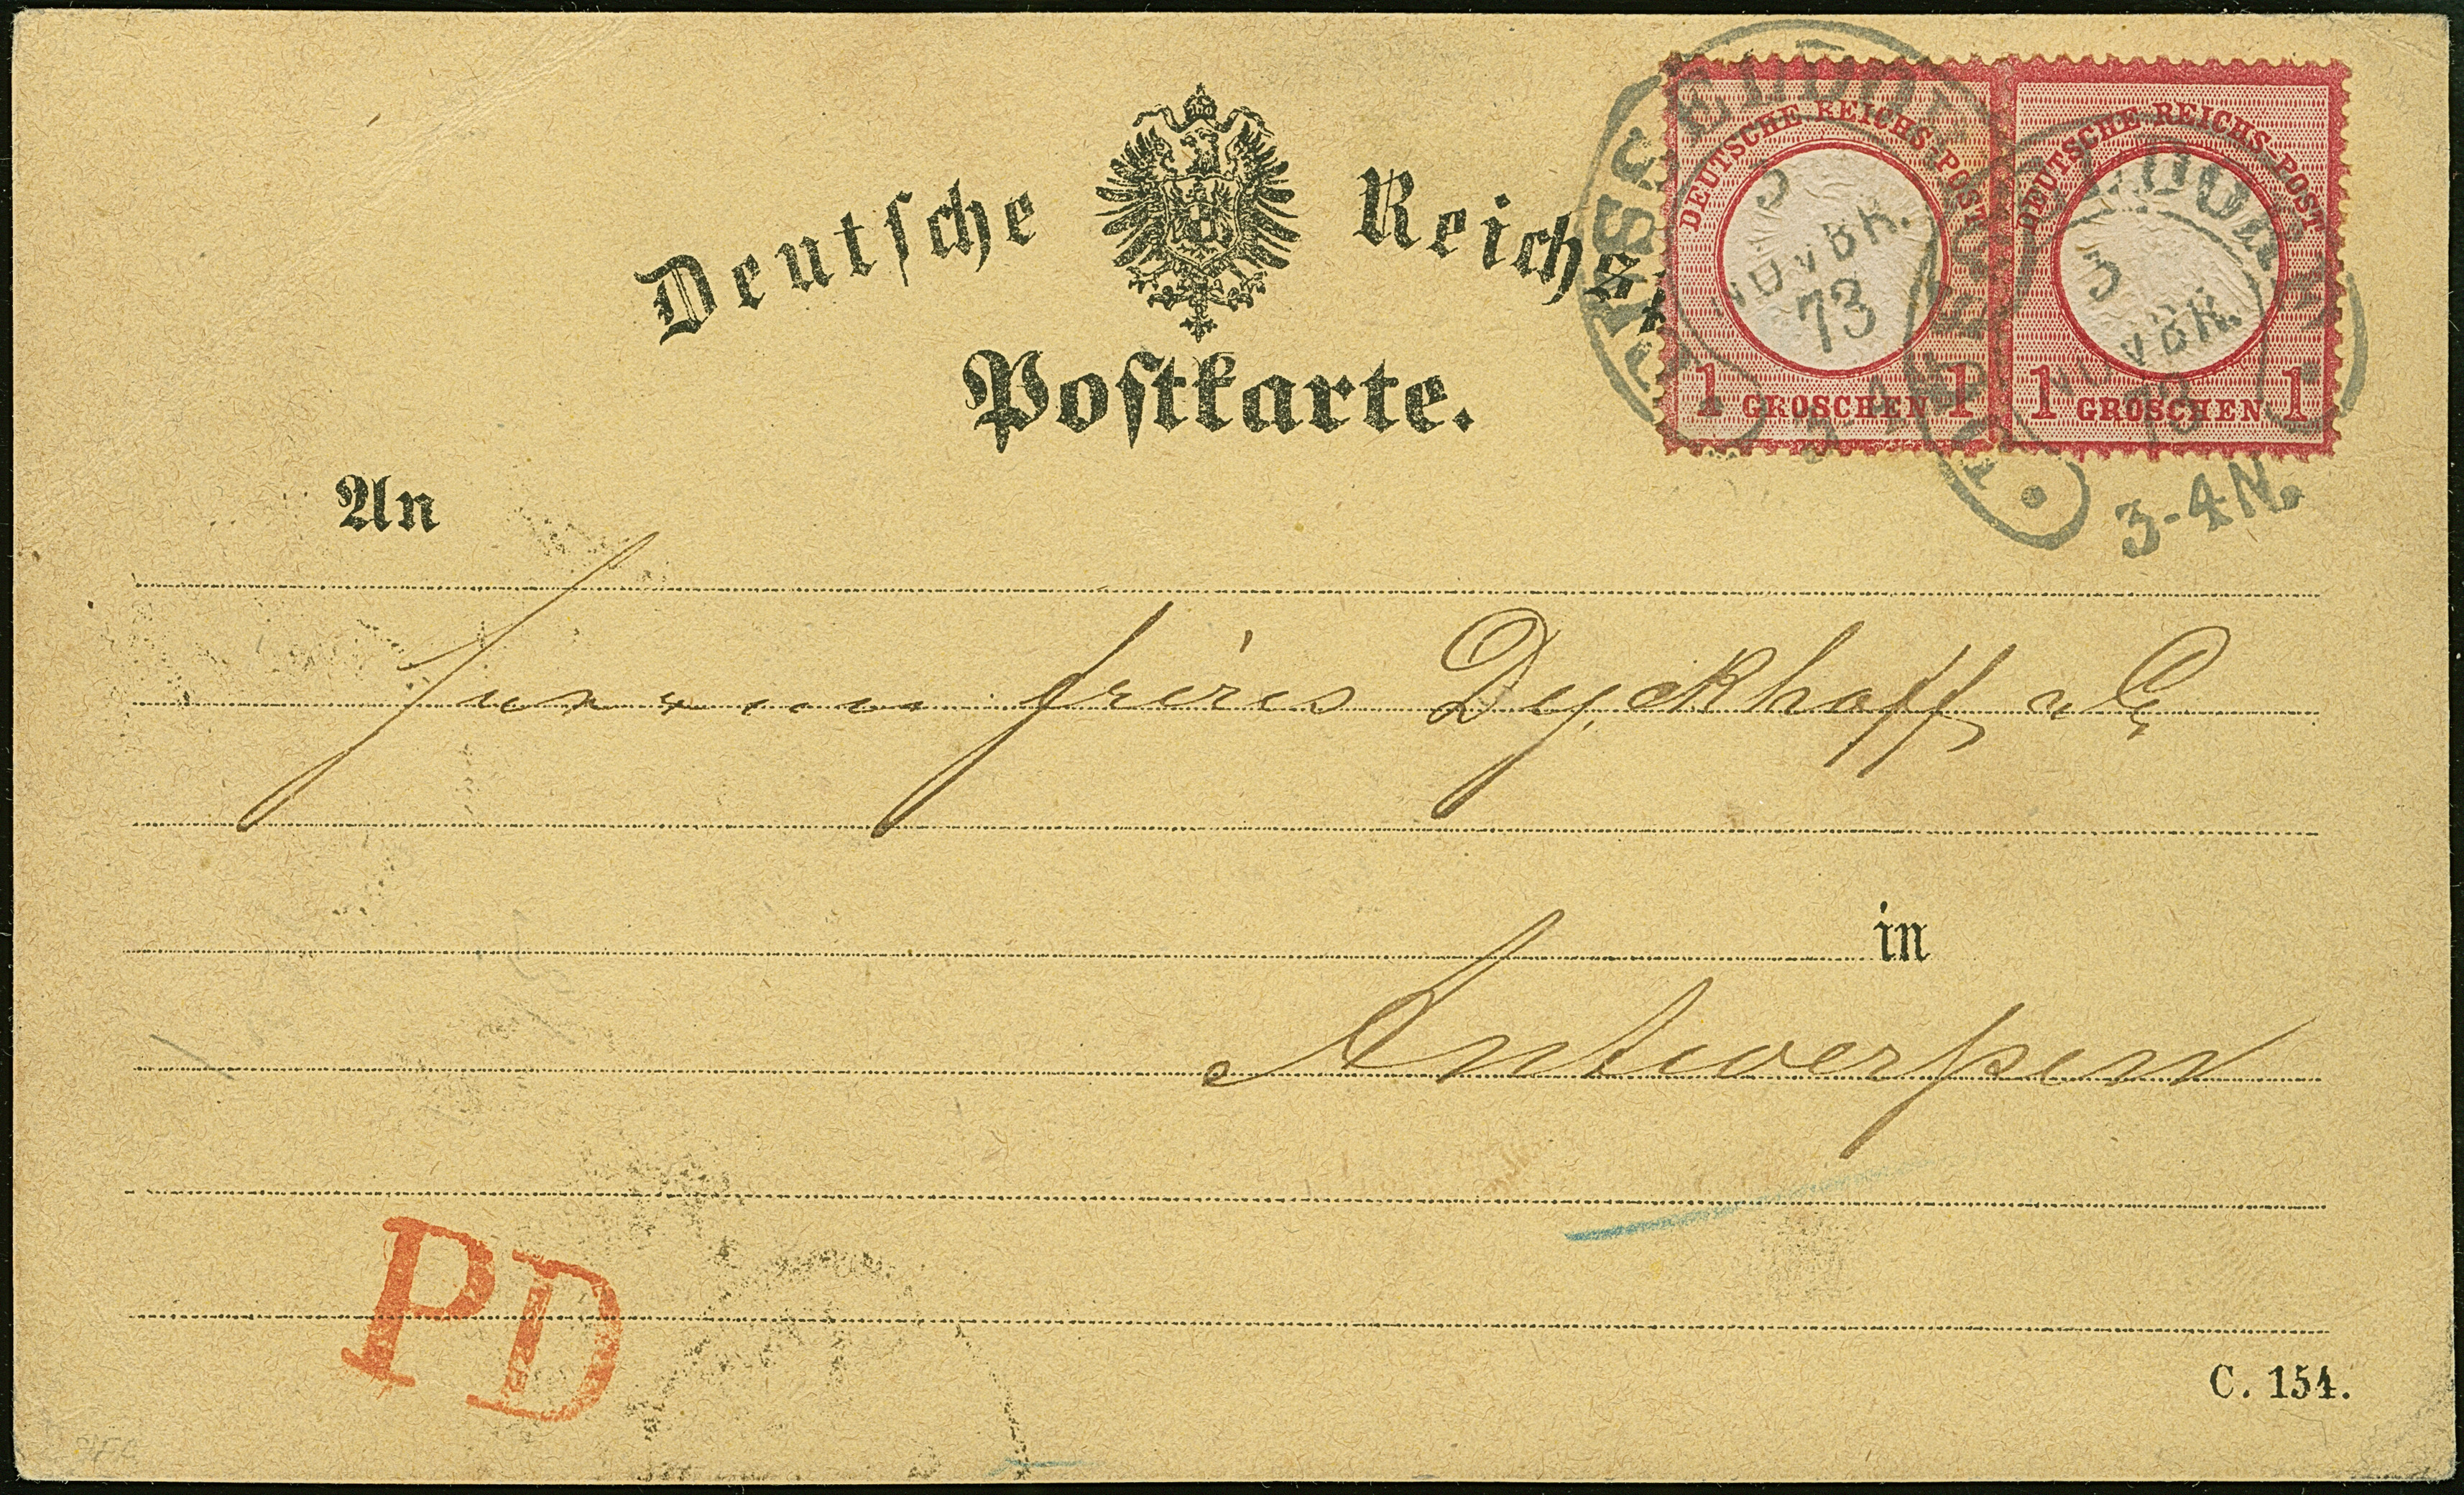 Deutsche Reichs-
Postkarte.
DEUTSCHE REICHS-POST
1 GROSCHEN 1
DEUTSCHE REICHS-POST
1 GROSCHEN 1
DÜSSELDORF
3
NOVBR.
73
3-4N.
DÜSSELDORF
3
NOVBR.
73
3-4N.
An
frères Dyckhoff & Co
in
Antwerpen
PD
C. 154.